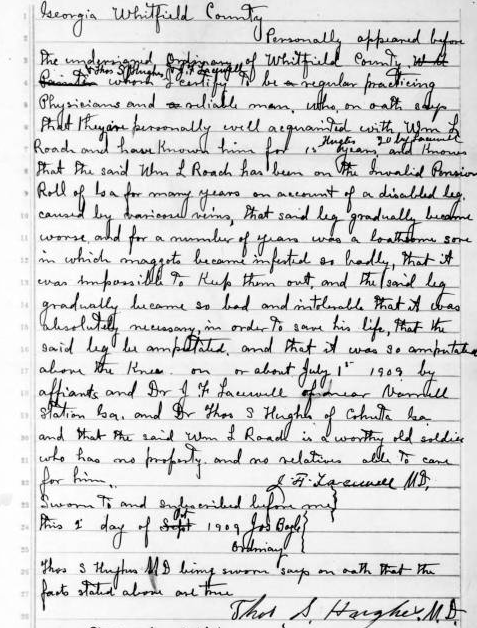 Georgia Whitfield County
Personally appeared before
the undersigned Ordinary of Whitfield County,
Thos S Hughes & J. F. Lacewell
whom I certify to be a regular practicing
Physicians and a reliable man, who, on oath says
that they are personally well acquainted with Wm L
Hughes 20 by Lacewell
Roach and have known him for 15 years, and knows
that the said Wm L Roach has been on the Invalid Pension
Roll of Ga for many years on account of a disabled leg.
caused by varicose veins, that said leg gradually became
worse, and for a number of years was a loathsome sore
in which maggots became infested so badly, that it
was impossible to keep them out, and the said leg
gradually became so bad and intolerable that it was
absolutely necessary, in order to save his life, that the
said leg be amputated, and that it was so amputated
above the Knee. on or about July 1st 1909 by
affiants and Dr J F Lacewell of near Varnell
Station Ga. and Dr Thos S Hughes of Cohutta Ga.
and that the said Wm L Roach is a worthy old soldier
who has no property, and no relatives able to care
for him.. J. F. Lacewell M.D.
Sworn to and subscribed before me
this 1 day of Sept 1909 Jos Bogle
Ordinary
Thos S Hughes MD being sworn says on oath that the
facts stated above are true
Thos S. Hughes, M.D.